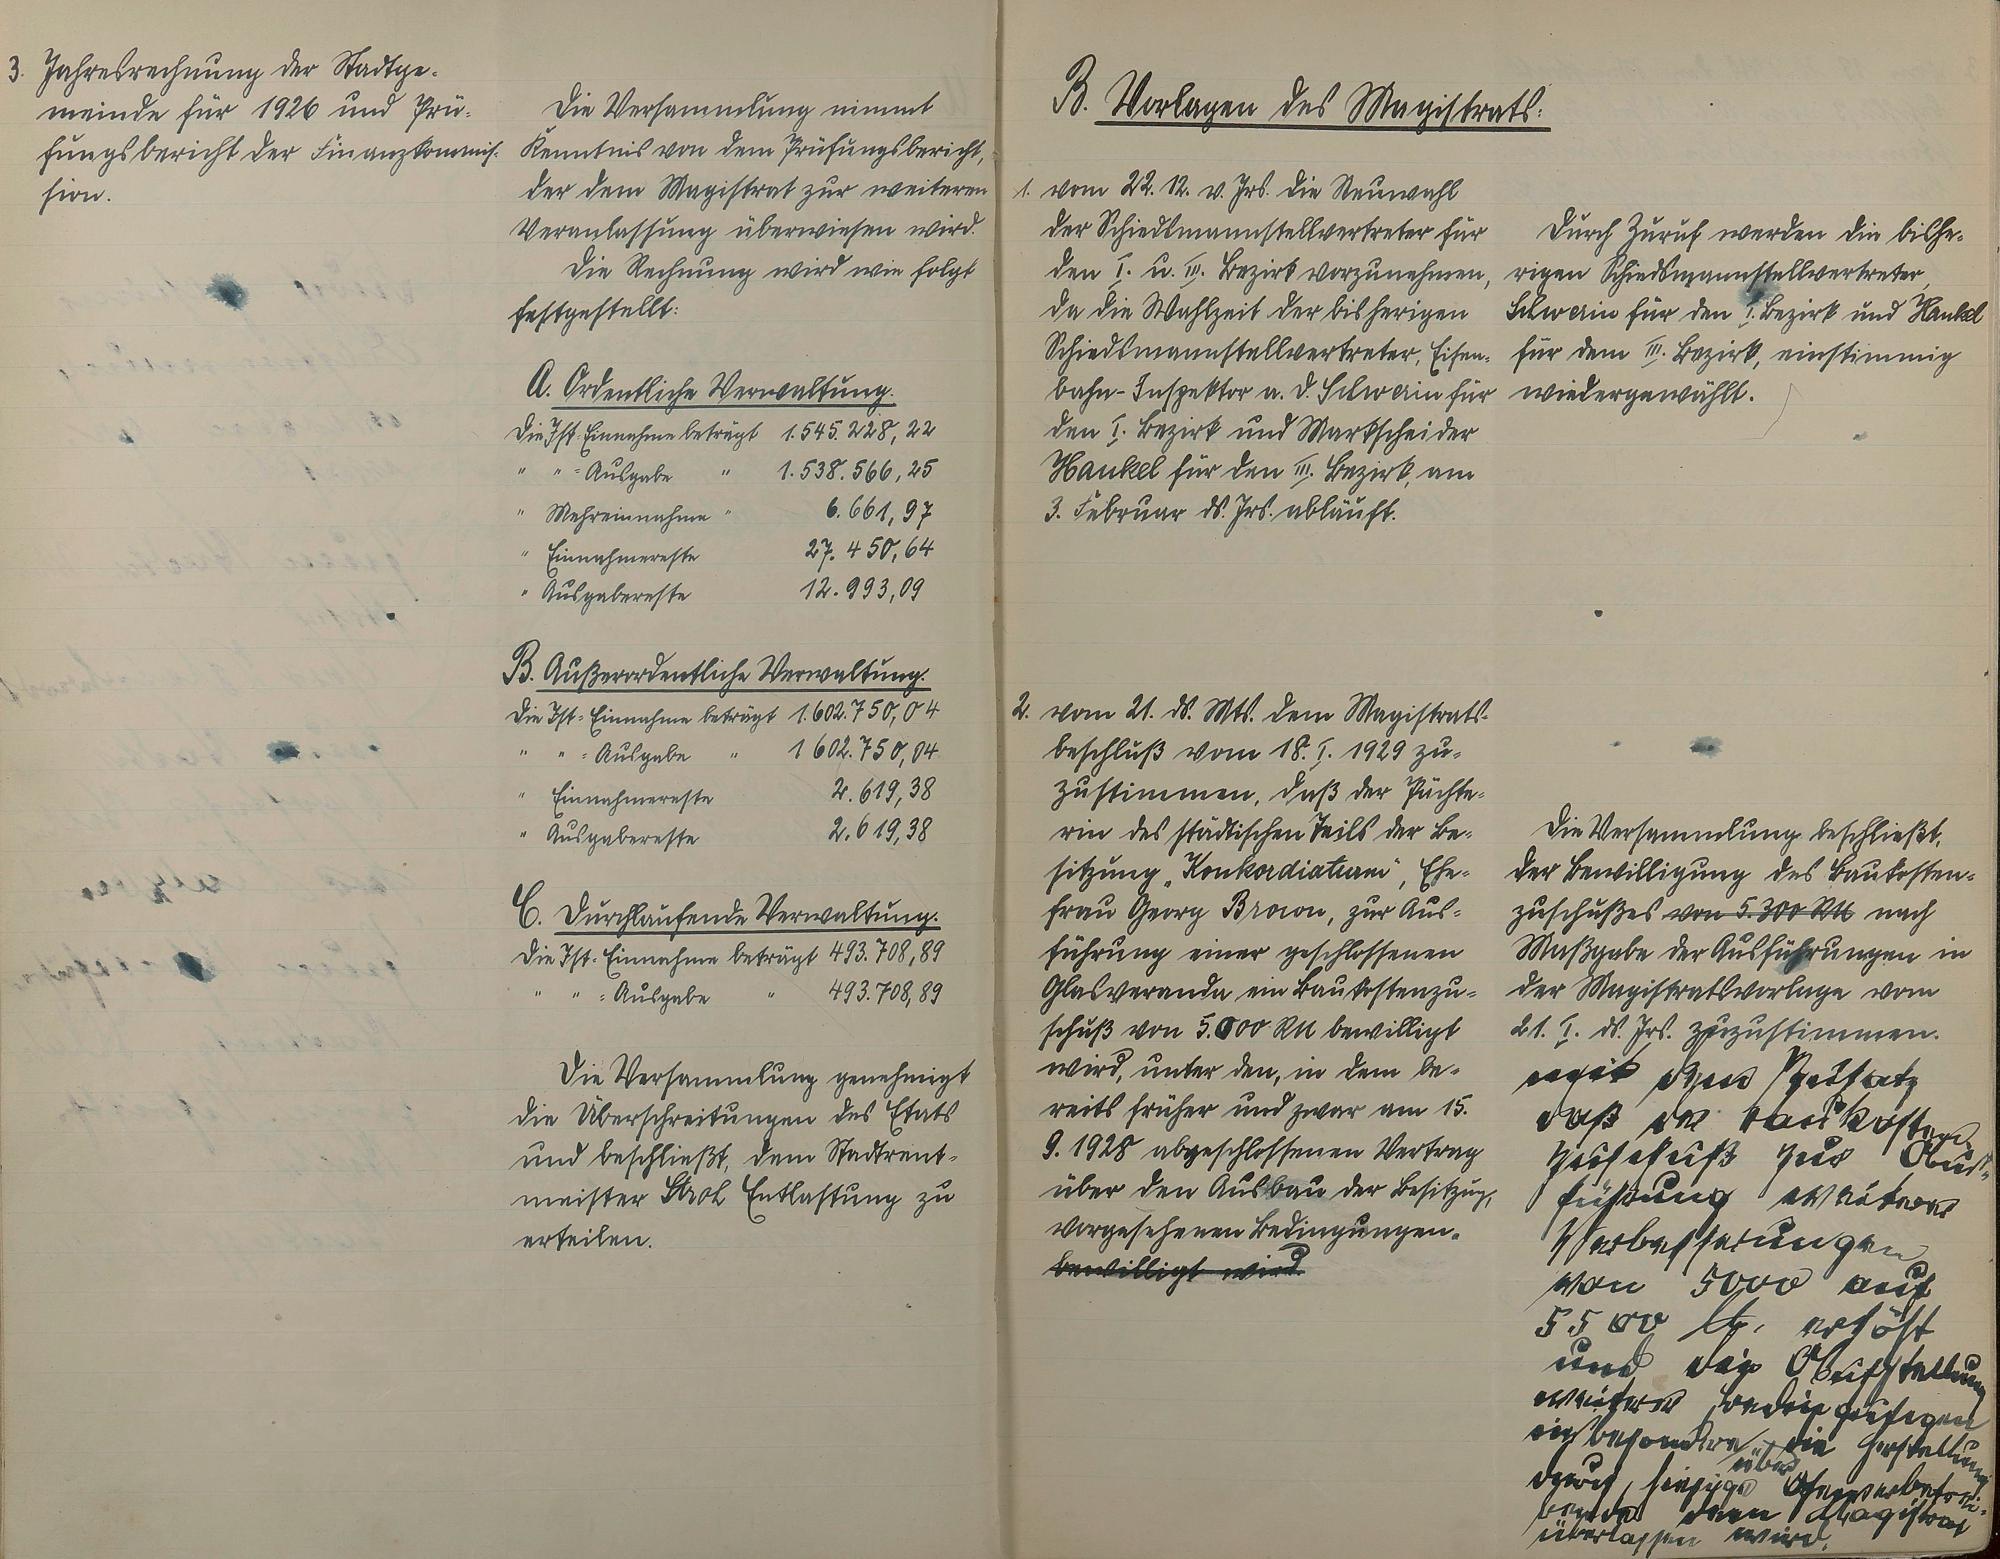 3. Jahresrechnung der Stadtge-
meinde für 1926 und Prü-
fungsbericht der Finanzkommis-
sion.
Die Versammlung nimmt
Kenntnis von dem Prüfungsbericht,
der dem Magistrat zur weiteren
Veranlassung überwiesen wird.
Die Rechnung wird wie folgt
festgestellt:
A. Ordentliche Verwaltung.
Die Ist-Einnahme beträgt 1.545.228,22
" " = Ausgabe " 1.538.566,25
" Mehreinnahme " 6.661,97
" Einnahmereste 27.450,64
" Ausgabereste 12.993,09
B. Außerordentliche Verwaltung.
Die Ist-Einnahme beträgt 1.602.750,04
" " = Ausgabe " 1 602.750,04
" Einnahmereste 2.619,38
" Ausgabereste 2.619,38
C. Durchlaufende Verwaltung.
Die Ist-Einnahme beträgt 493.708,89
" " = Ausgabe " 493.708,89
Die Versammlung genehmigt
die Überschreitungen des Etats
und beschließt, dem Stadtrent-
meister Entlastung zu
erteilen.
B. Vorlagen des Magistrats:
1. vom 22.12. v. Jrs. die Neuwahl
der Schiedsmannstellvertreter für
den I. u. III. Bezirk vorzunehmen,
da die Wahlzeit der bisherigen
Schiedsmannstellvertreter, Eisen-
bahn-Inspektor a. D. Schwain für
den I. Bezirk und Markscheider
Hankel für den III. Bezirk, am
3. Februar ds. Jrs. abläuft.
Durch Zuruf werden die bishe-
rigen Schiedsmannstellvertreter,
Schwain für den I. Bezirk und Hankel
für dem III. Bezirk, einstimmig
wiedergewählt.
2. vom 21. ds. Mts. dem Magistrats-
beschluß vom 18. I. 1929 zu-
zustimmen, daß der Pächte-
rin des städtischen Teils der Be-
sitzung "Konkordiaturm", Ehe-
frau Georg Brown, zur Aus-
führung einer geschlossenen
Glasveranda ein Baukostenzu-
schuß von 5.000 RM bewilligt
wird, unter den, in dem be-
reits früher und zwar am 15.
9.1928 abgeschlossenen Vertrag
über den Ausbau der Besitzung,
vorgesehenen Bedingungen.
bewilligt wird.
Die Versammlung beschließt,
der Bewilligung des Baukosten-
zuschußes von 5.300 RM nach
Maßgabe der Ausführungen in
der Magistratsvorlage vom
21. I. ds. Jrs. zuzustimmen.
mit dem Zusatz
daß der Baukosten
zuschuß zur Aus-
führung weiterer
Verbesserungen
von 5000 auf
5500 M. erhöht
und die Aufstellung
weiterer Bedingungen
insbesondere die Herstellung
durch hiesige Gewerbetrei-
über
bende dem Magistrat
überlassen wird.